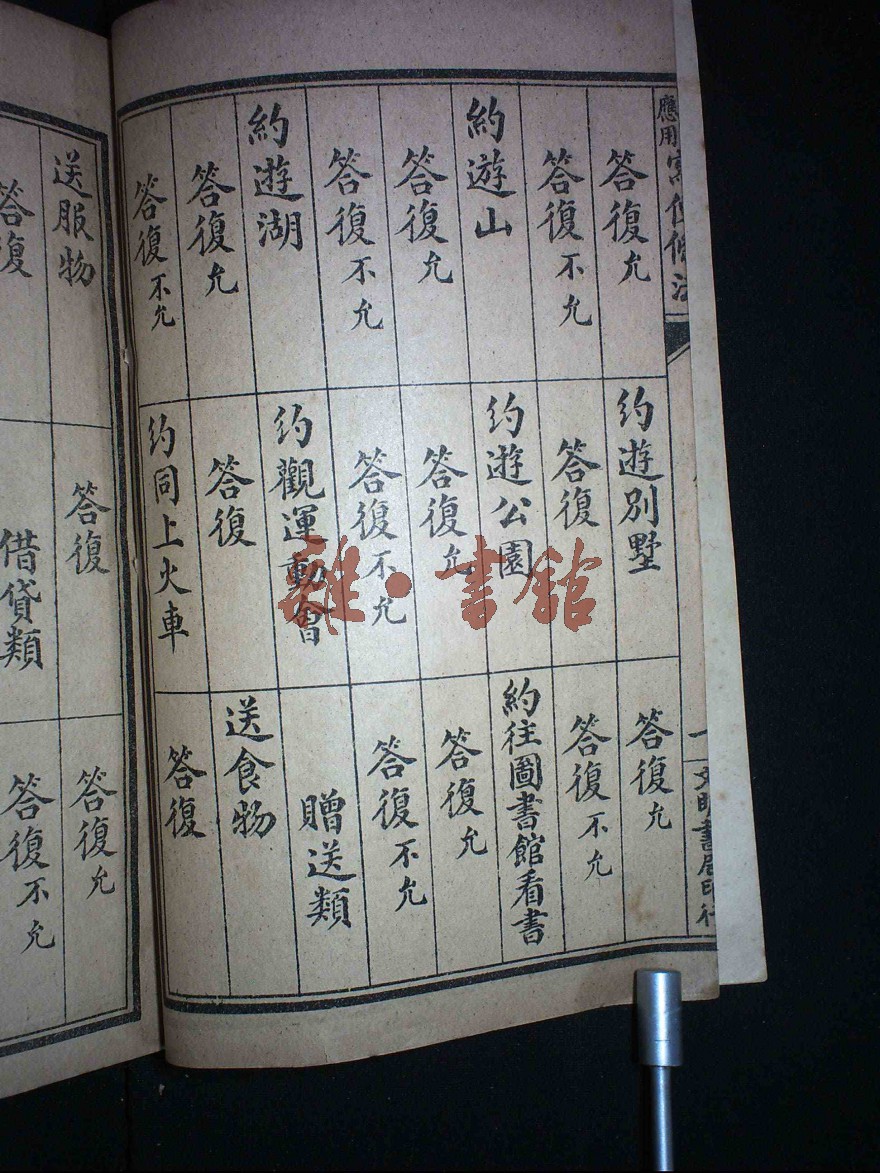 應用寫信備法
一 文明書局印行
答復允
答復不允
約遊山
答復允
答復不允
約遊湖
答復允
答復不允
約遊別墅
答復
約遊公園
答復允
答復不允
約觀運動會
答復
約同上火車
答復允
答復不允
約往圖書館看書
答復允
答復不允
贈送類
送食物
答復
送服物
答復
答復
借貸類
答復允
答復不允
雜·書館